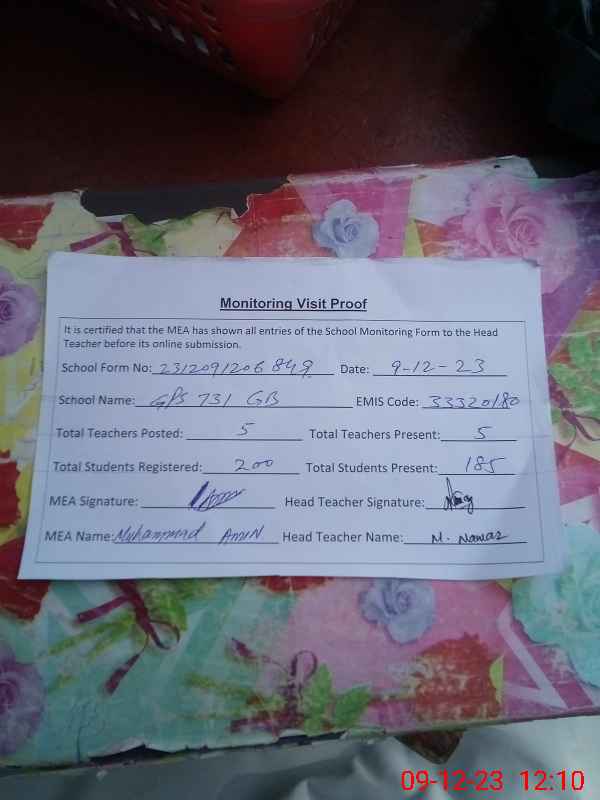 Monitoring Visit Proof
It is certified that the MEA has shown all entries of the School Monitoring Form to the Head
Teacher before its online submission.
School Form No: 2312091206849 Date: 9-12-23
School Name: GPS 731 GB EMIS Code: 33320180
Total Teachers Posted: 5 Total Teachers Present: 5
Total Students Registered: 200 Total Students Present: 185
MEA Signature: Head Teacher Signature:
MEA Name: Muhammad AMIN Head Teacher Name: M. Nawaz
09-12-23 12:10